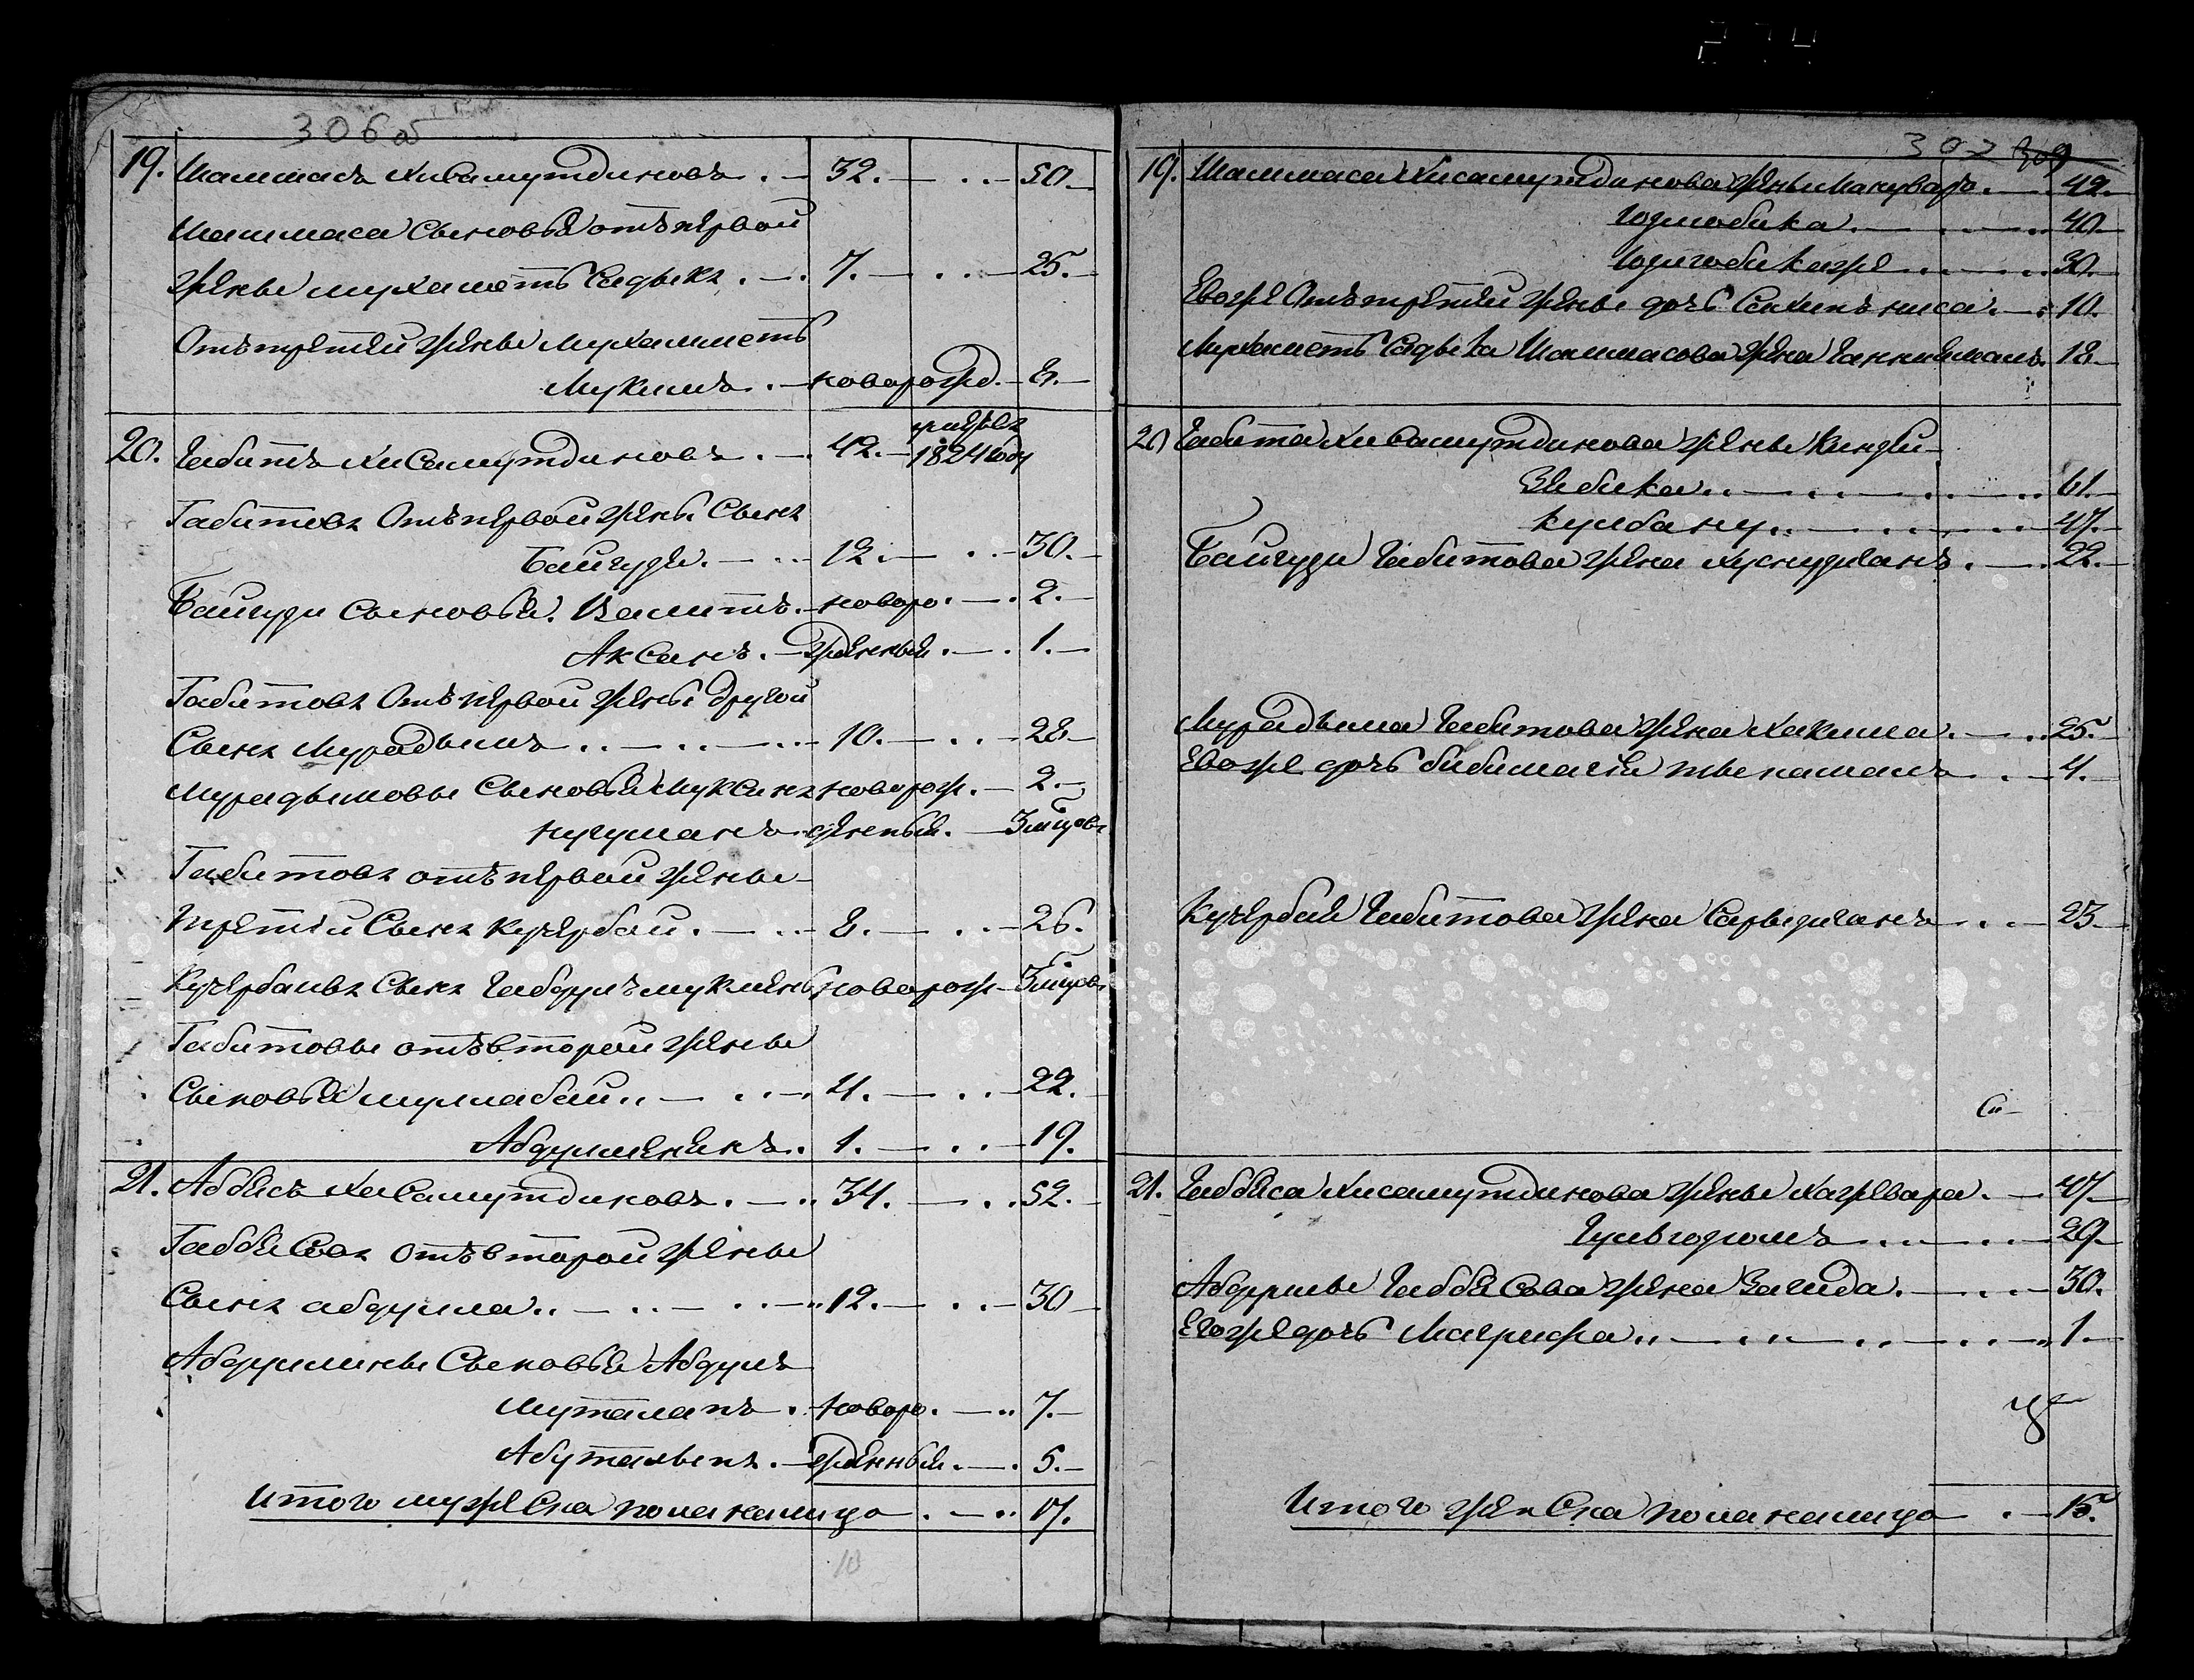 306 об
19. Шаммасъ Хисамутдиновъ . — 32. — . . — 50. —
Шаммаса Сыновья отъ первой
жены мухаметь Садыкъ . — . 7. — . . — 25. —
Отъ третей жены Мухамметь
Мукимъ . — новорожд. — 8. —
20. Габитъ Хисамутдиновъ . — . 42. — умеръ въ 1824 году
Габитовъ Отъ первой жены Сынъ
Байгузи . — . . — 12. — . . — 30. —
Байгузи Сыновья . Вамитъ . — новоро . — . 2. —
Аксанъ . — жденныя . — . 1. —
Габитовъ Отъ первой жены другой
Сынъ Мурадымъ . . — . . — . . — 10. — . . — 28 —
Мурадымовы Сыновья Муксинъ новорож . — 2. —
нугуманъ . . денныя . — 3 мѣсяцовъ
Габитовъ отъ первой жены
третій Сынъ Кучербай . — . . — 8. — . . — 26.
Кучербаевъ Сынъ Габдулъмукмень новорож — 3 мѣсяцовъ
Габитовы отъ второй жены
Сыновья мулмабай . . — . . — . 4. — . . — 22. —
Абдулменекъ . . 1. — . . — 19.
21. Аббясъ Хисамутдиновъ . — . . 34. — . . 52. —
Габбясовъ отъ второй жены
Сынъ абдулла . . — . . — . . — . . 12. — . . — 30 —
Абдуллины Сыновья Абдулъ
Муталапъ . новоро . — . . 7. —
Абуталыпъ . — жденныя . — . 5. —
Итого мужеска пола налицо . — . . 17.
10
307 309
19. Шаммаса Хисамутдинова жены Манувара . — 42. —
Юдмобика . — . . — . . 40. —
Юлгобиказя . . . . 30. —
Евоже Отъ третей жены дочь Салипъ ниса . — . 10.
Мухаметь Садыка Шаммасова жена Ганнилмамъ . 18. —
20 Габита Хисамутдинова жены Кинзи-
Збика . . — . . — . . — . . 61. —
Кулбану . . — . . — . . 47. —
Байгузи Габитова жена Хуснуджанъ . — . . 22. —
Мурадыма Габитова жена Хакима . — . . 25. —
Евоже дочь бибимагия тынамамъ . . — 4. —
Кучербая Габитова жена Сарвиджанъ . . . — 23. —
21. Габбяса Хисамутдинова жены Хажевара . — 47. —
Гульюдюмъ . . . — 29. —
Абдуллы Габбясова жена Вагида . — . . — 30.
Егоже дочь Магрифа . . — . . — . . — . . — . . 1. —
Итого женска пола налицо . — 15.